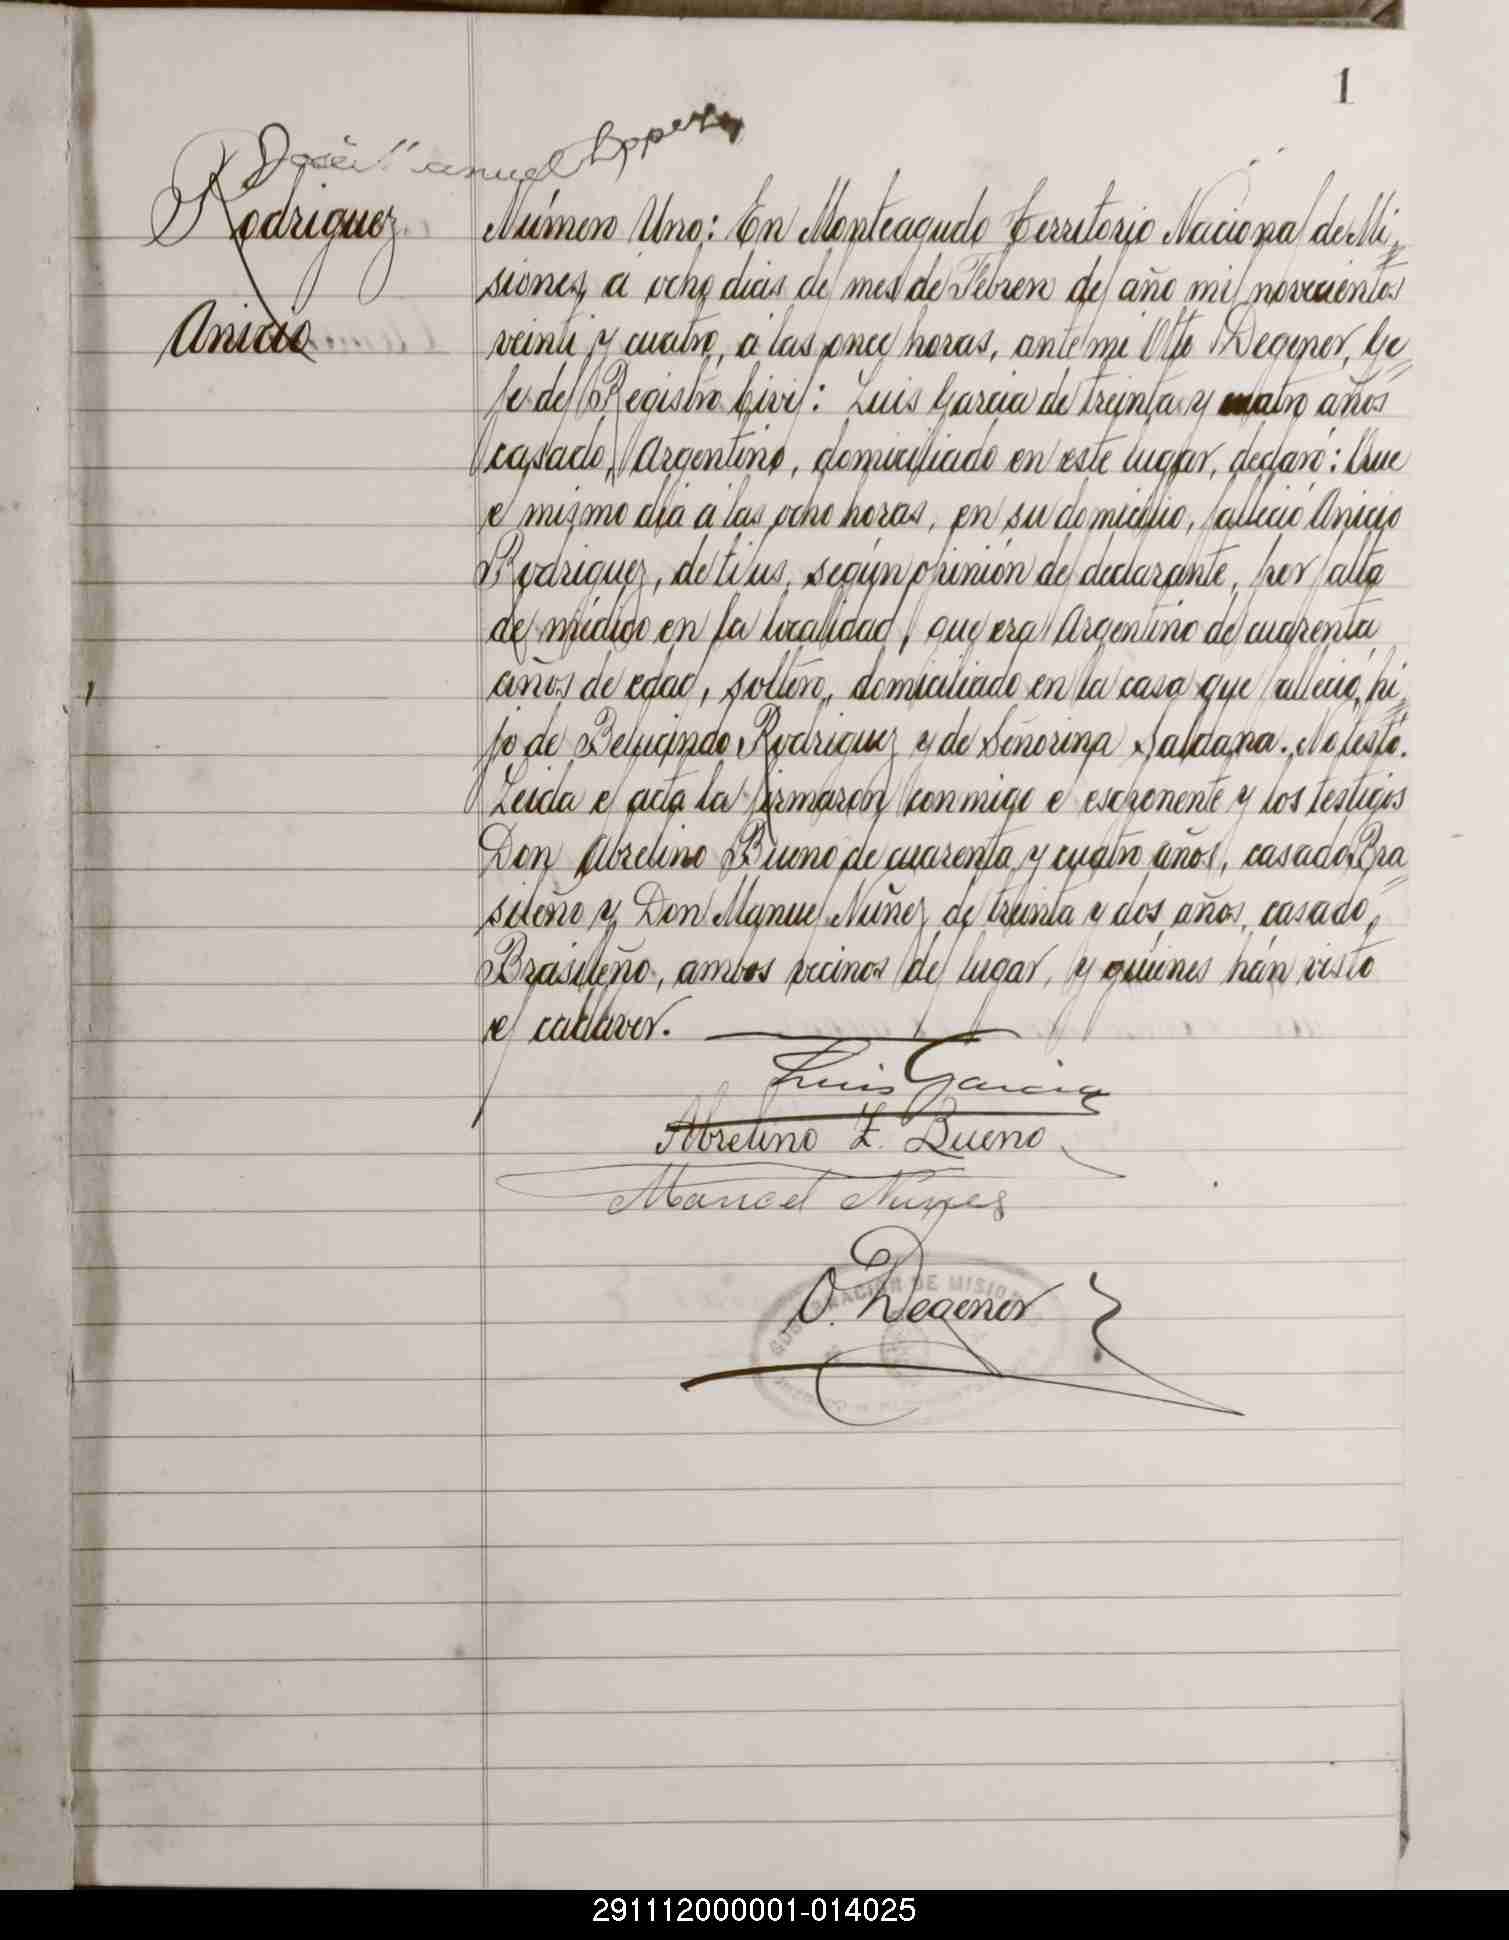 1
José Manuel
Rodriguez
Anicio
Número Uno: En Monteagudo Territorio Nacional de Mi=
siones, á ocho dias del mes de Febrero del año mil novecientos
veinti y cuatro, á las once horas, ante mi Otto Degener, Ge=
fe del Registro Civil: Luis Garcia de treinta y cuatro años
casado, Argentino, domiciliado en este lugar, declaró: Que
el mismo dia á las ocho horas, en su domicilio, falleció Anicio
Rodriguez, de tifus, según opinión del declarante, por falta
de médico en la localidad, que era Argentino de cuarenta
años de edad, soltero, domiciliado en la casa que falleció, hi=
jo de Belucindo Rodriguez y de Señorina Saldaña. No testó.
Leida el acta la firmaron conmigo el esxponente y los testigos
Don Abrelino Bueno de cuarenta y cuatro años, casado, Bra=
sileño y Don Manuel Nuñez de treinta y dos años, casado,
Brasileño, ambos vecinos del lugar, y quiénes hán visto
el cadaver.
Luis Garcia
Abrelino Z. Bueno
Manoel Nunes
O. Degener
GOBERNACIÓN DE MISIONES
291112000001-014025